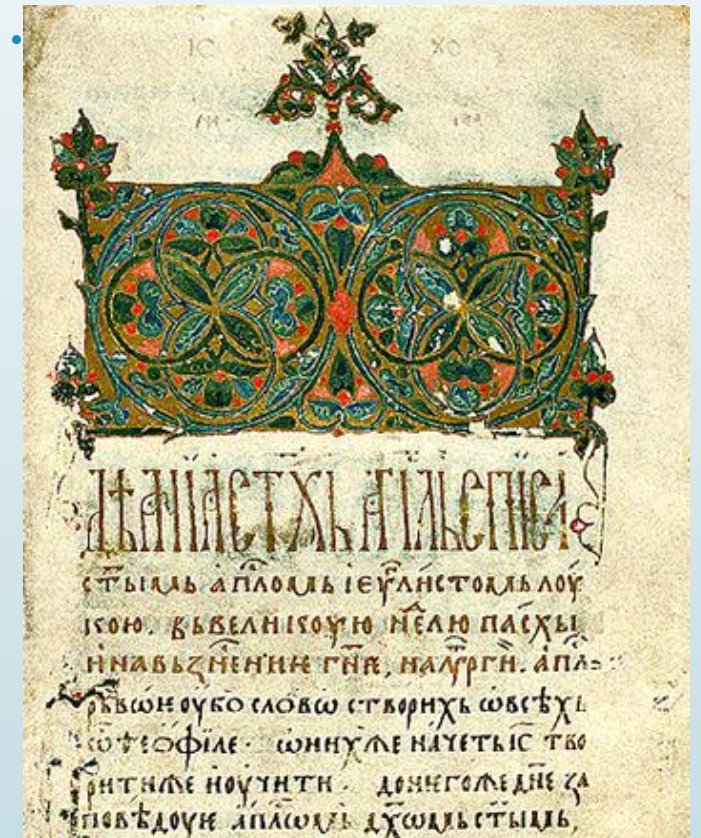 ДѢꙖНІꙖ СТ҃ХЬ АП҃ЛЬ СПИСА
СТ҃ЫМЬ АПⷭ҇ЛОМЬ І ЕѴⷢ҇ЛИСТОМЬ ЛОУ
КОЮ. ВЬ ВЕЛИКОУЮ НЕⷣЛЮ ПАСХЫ
И НА ВЬЗНЕСЕНИѤ ГН҃Ѥ, НА ЛѴРГИ. АПⷭ҇Л
РЬВѠѤ ОУБО СЛОВѠ СТВОРИХЬ Ѡ ВСѢХЬ
Ѡ ѲЕѠФІЛЕ · Ѡ НИХЖЕ НАЧЕТЬ ІС҃ ТВО
РИТИ ЖЕ И ОУЧИТИ · ДО НѤГОЖЕ ДНЕ ЗА
ПОВѢДОУѤ АПⷭ҇ЛѠМЬ ДХ҃ѠМЬ СТ҃ЫМЬ,